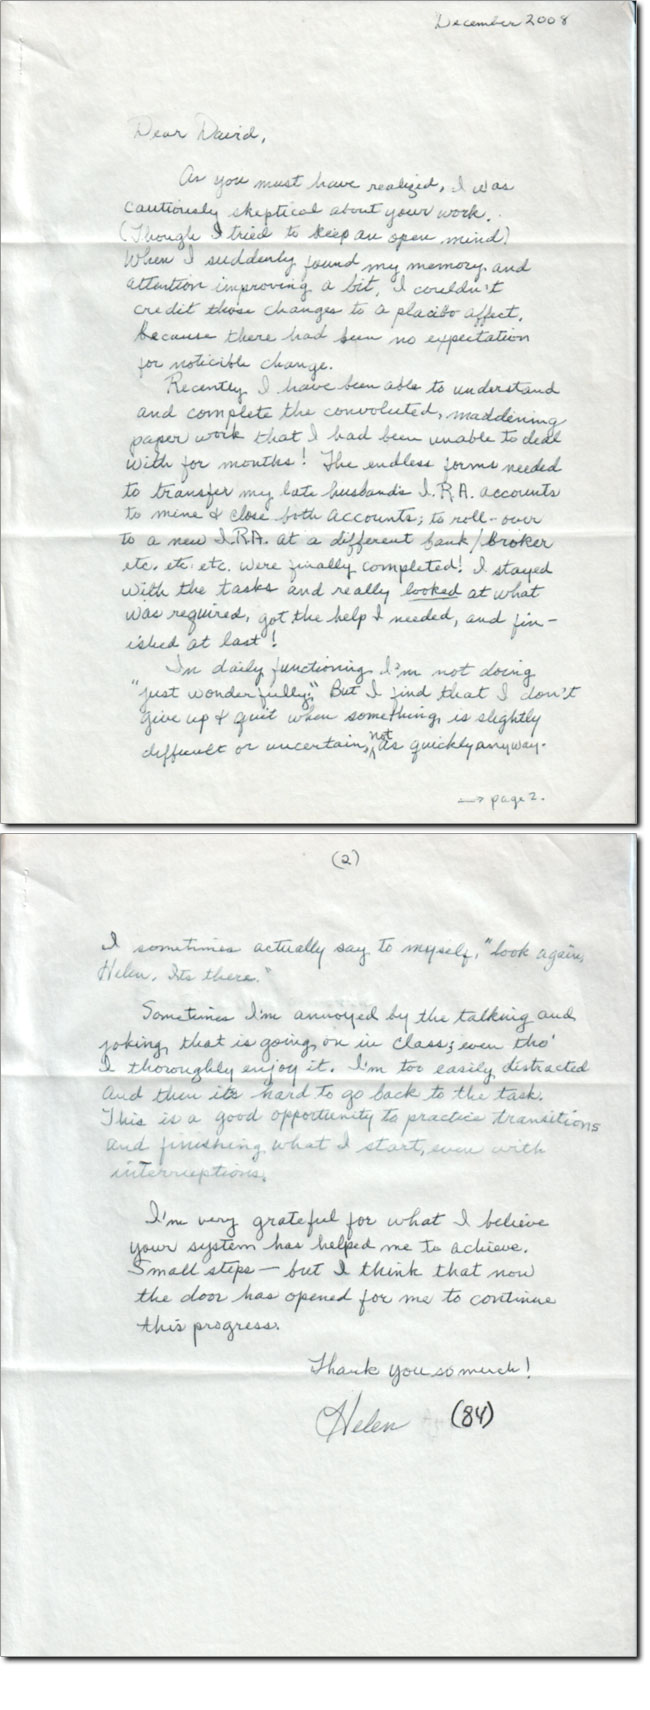 December 2008
Dear David,
As you must have realized, I was
cautiously skeptical about your work.
(Though I tried to keep an open mind)
When I suddenly found my memory and
attention improving a bit, I couldn't
credit those changes to a placibo affect,
because there had been no expectation
for noticible change.
Recently I have been able to understand
and complete the convoluted, maddening
paper work that I had been unable to deal
with for months! The endless forms needed
to transfer my late husband's I.R.A. accounts
to mine & close both accounts; to roll-over
to a new I.R.A. at a different bank/broker
etc. etc. etc. were finally completed! I stayed
with the tasks and really looked at what
was required, got the help I needed, and fin-
ished at last!
In daily functioning I'm not doing
"just wonderfully." But I find that I don't
give up & quit when something is slightly
difficult or uncertain, not as quickly anyway.
→ page 2.
(2)
I sometimes actually say to myself, "look again,
Helen. Its there."
Sometimes I'm annoyed by the talking and
joking that is going on in class; even tho'
I thoroughly enjoy it. I'm too easily distracted
and then its hard to go back to the task.
This is a good opportunity to practice transitions
and finishing what I start, even with
interruptions.
I'm very grateful for what I believe
your system has helped me to achieve.
Small steps — but I think that now
the door has opened for me to continue
this progress.
Thank you so much!
Helen (84)